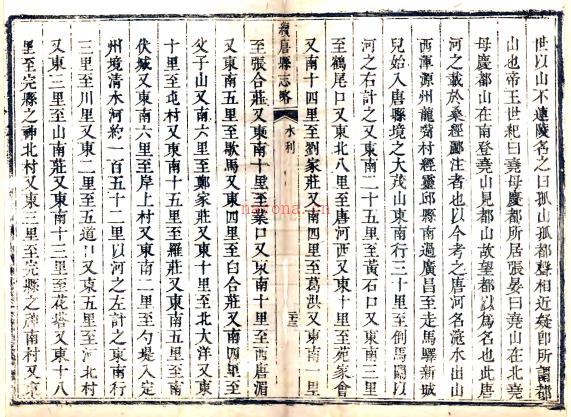 世以山不連陵名之曰孤山孤都聲相近疑即所謂都
山也帝王世紀曰堯母慶都所居張晏曰堯山在北堯
母慶都山在南登堯山見都山故望都以為名也此唐
河之載於桑經酈注者也以今考之唐河名滱水出山
西渾源州龍 村經靈邱縣南過廣昌至走馬驛新城
兒始入唐縣境之大茂山東南行三十里至倒馬關以
河之右計之又東南二十五里至黃石口又東南三里
至鶴尾口又東北八里至唐河西又東十里至苑家會
又南十四里至劉家莊又南四里至葛洪又東南一里
續唐縣志略
水利
至張合莊又東南十里至葉口又東南十里至西唐湄
又東南五里至歇馬又東四里至白合莊又東四里至
父子山又南六里至鄭家莊又東十里至北大洋又東
十里至屯村又東南十五里至羅莊又東南五里至
伏城又東南六里至岸上村又東南二里至勺堤入定
州境清水河約一百五十二里以河之左計之東南行
三里至川里又東二里至五道口又東五里至河北
又東二里至山南莊又東南十三里至花塔又東十八
里至完縣之神北村又東三里至完縣之神南村又東